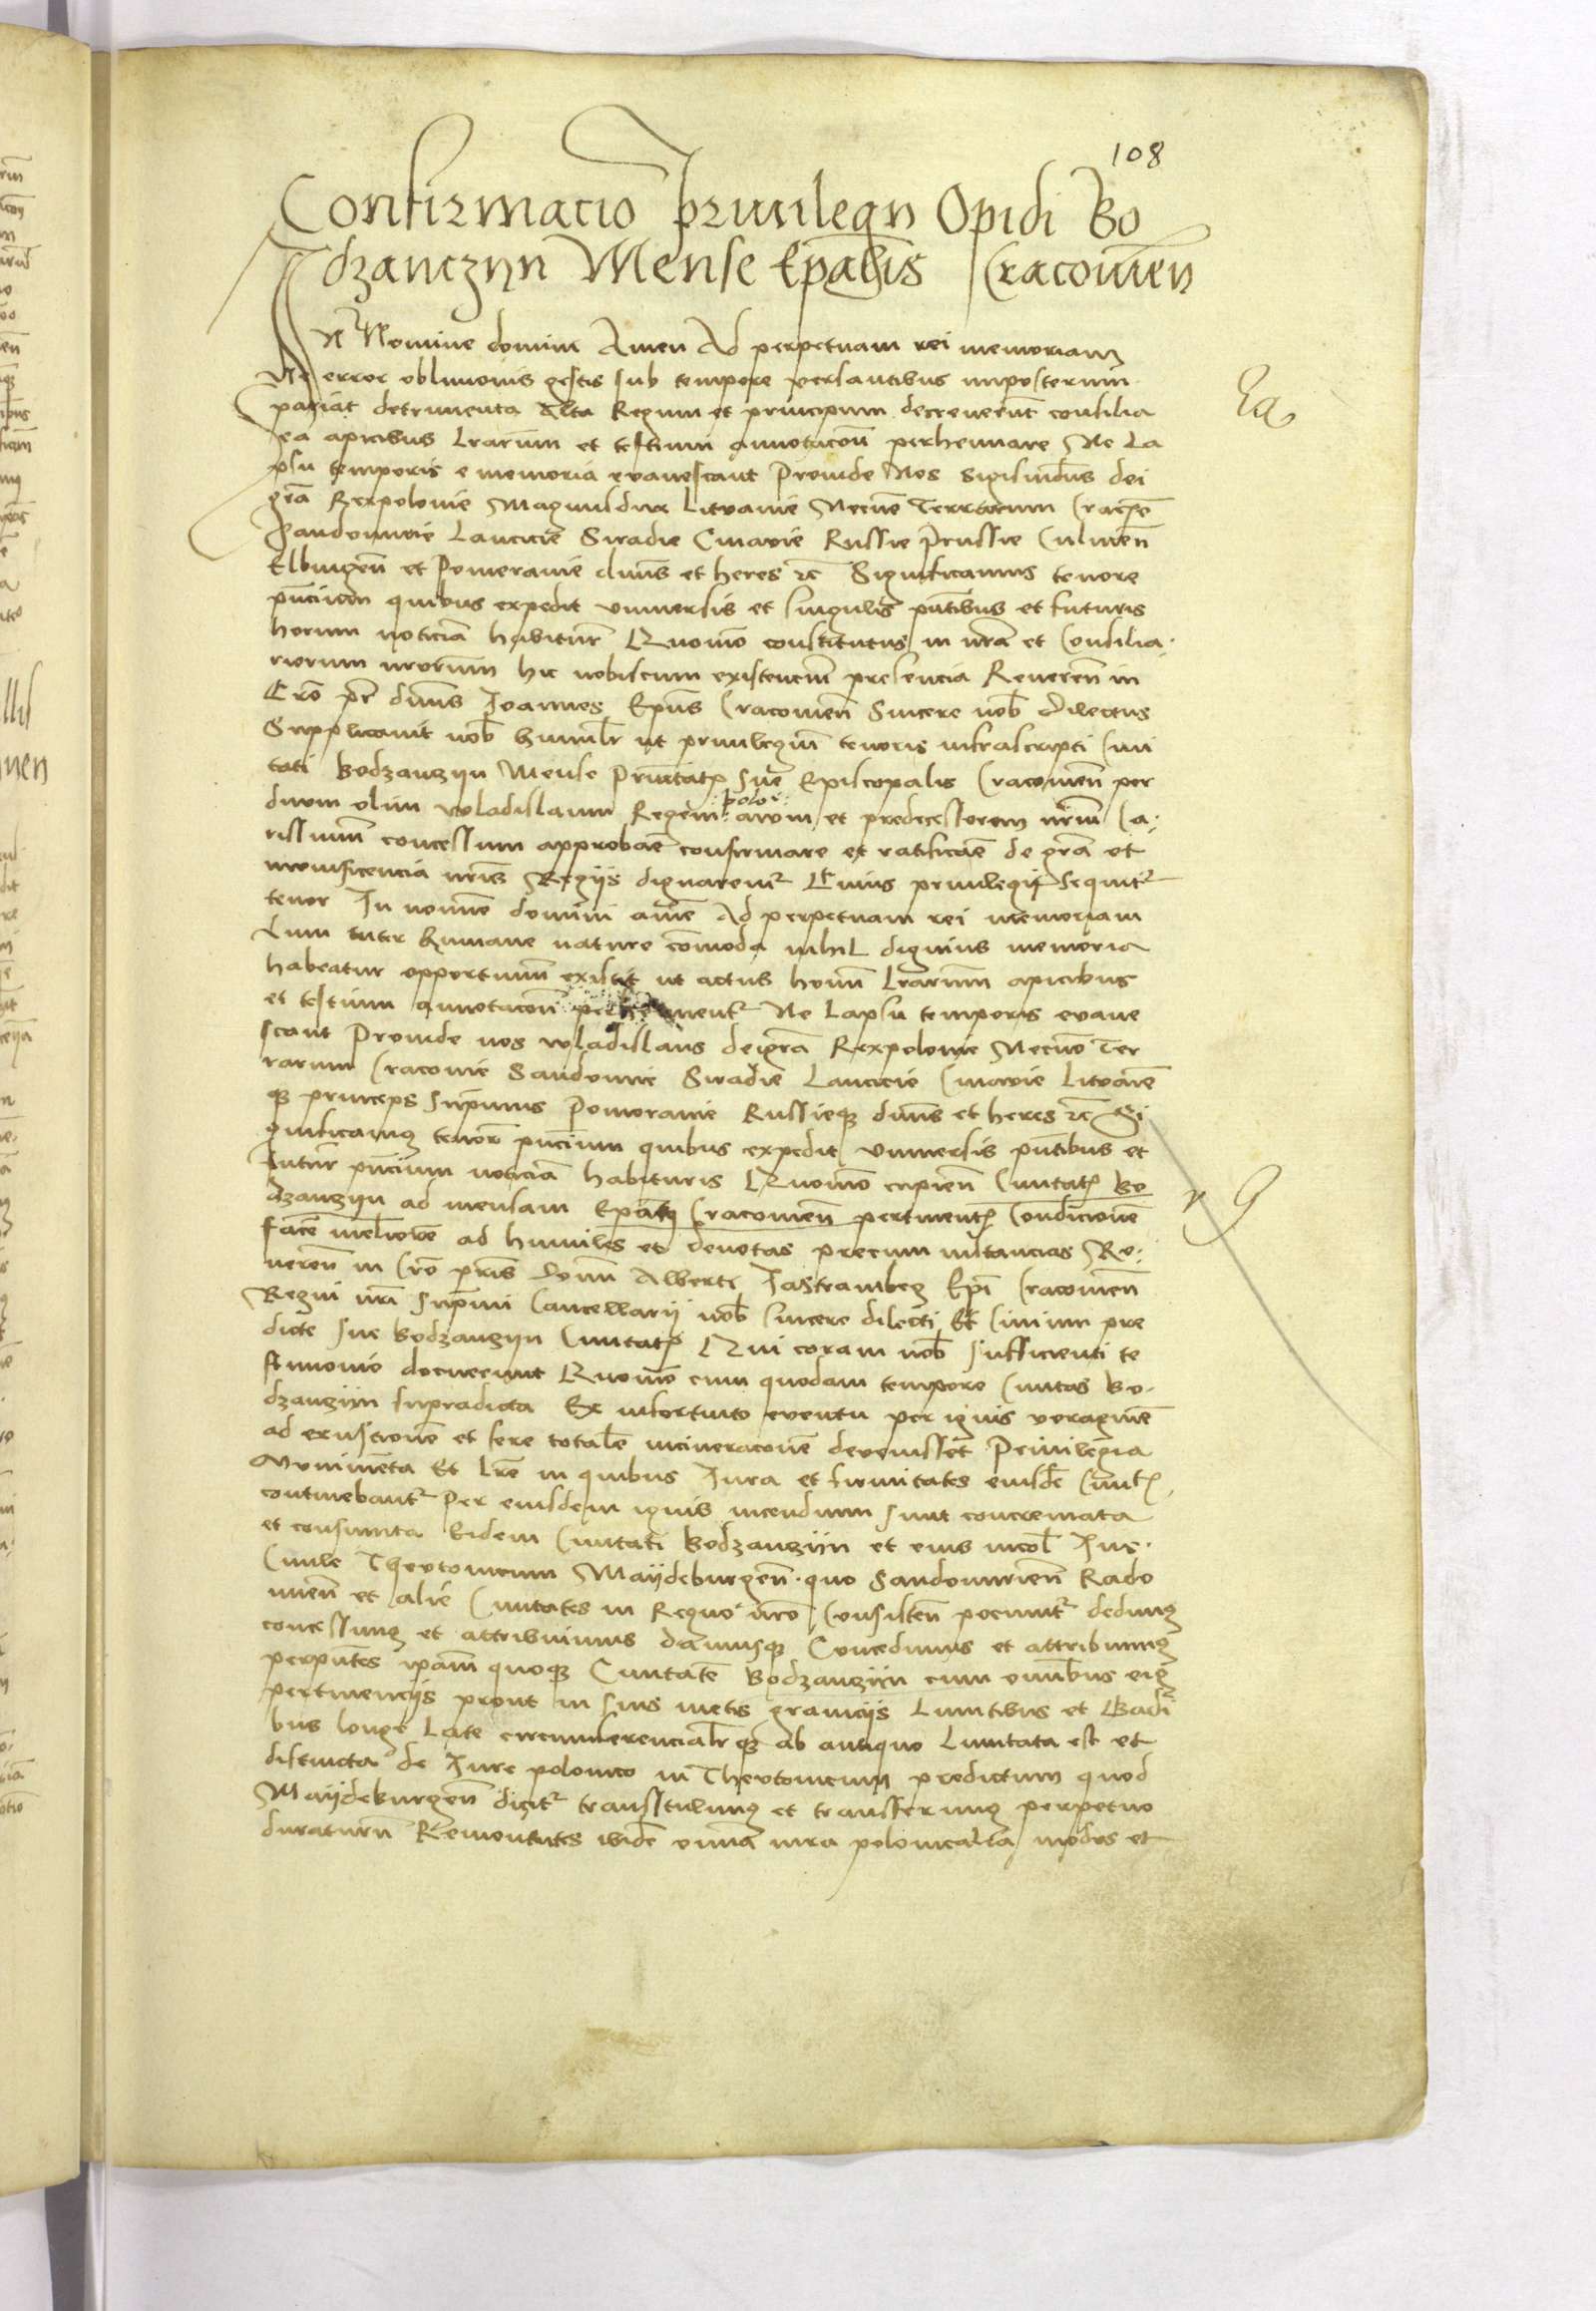 108
Confirmacio privilegii Opidi Bo
dzanczyn Mense Epalis Cracovien
In Nomine domini Amen Ad perpetuam rei memoriam
Ne error oblivionis gestis sub tempore versantibus imposterum
pariat detrimenta Alta Regum et principum decreverunt consilia
ea apicibus lrarum et testium annotacon perhennare Ne La
psu temporis e memoria evanescant Proinde Nos Sigismdus dei
gra Rex polonie Magnus dux Litvanie Necno Terrarum Crac
Sandomirie Lancicie Siradie Cuiavie Russie Prussie Culmen
Elbingen et Pomeranie dnus et heres zc Significamus tenore
pncium quibus expedit universis et singulis pntibus et futuris
horum noticia habitur Quomo constitutus in nra et Consilia
riorum nrorum hic nobiscum existencium presencia Reveren in
Cro pr dnus Joannes Epus Cracovien Sincere nob dilectus
Supplicavit nob humilr ut privilegium tenoris infrascripti Civi
tati Bodzanczyn Mense Pnitat sue Episcopalis Cracovien per
divum olim wladislaum Regem polo: avum et predecessorem nrum Ca
rissimum concessum approbare confirmare et ratificare de gra et
munificencia nris Regiis dignaremur Cuius privilegii sequitr
tenor In nomine domini ame Ad perpetuam rei memoriam
Cum inter humane nature comoda nihil dignius memoria
habeatur opportunum existit ut actus hoium lrarum apicibus
et testium annotacon perhennentr Ne lapsu temporis evane
scant Proinde nos wladislaus dei gra Rex polonie Necno Ter
rarum Cracovie Sandomie Siradie Lancicie Cuiavie Litvanie
q princeps Supmus Pomoranie Russieq dnus et heres zc Si
gnificamus tenore pncium quibus expedit Universis pntibus et
futur pncium noticia habituris Quomo cupien Civitat Bo
dzanczyn ad mensam Epat Cracovien pertinent Condicione
facere meliore ad humiles et devotas precum instancias Re
veren in Cro pris domi Alberti Jastrambeg Epi Cracovien
Regni nri Supmi Cancellarii nob Sincere dilecti Et Civium pre
dicte sue Bodzanczyn Civitat Qui coram nob sufficienti te
stimonio docuerunt Quomo cum quodam tempore Civitas Bo
dzanczyn supradicta Ex infortuito eventu per ignis voragine
ad exustione et fere totale incineracone devenisset Privilegia
Munimenta Et lre in quibus Jura et firmitates eiusde Civit
continebantr Per eiusdem ignis incendium sunt concremata
et consumta Eidem Civitati Bodzanczyn et eius incol Jus
Civile Theutonicum Maydeburgen quo Sandomirien Rado
mien et alie Civitates in Regno nro Consisten pociuntr dedimus
concessimus et attribuimus damusq Concedimus et attribuimus
per pntes ipam quoq Civitate Bodzanczyn cum omnibus eius
pertinenciis prout in suis metis graniciis Limitibus et Gadi
bus longe Late circumferencialrq ab antiquo Limitata est et
distincta de Jure polonico in Theutonicum predictum quod
Maydeburgen dicitr transtulimus et transferimus perpetuo
duraturu Removentes ibide omnia iura polonicalia modos et